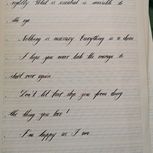 rightly. What is essential is invisible to
the eye.
Nothing is necessary. Everything is a choice
I hope you never lack the courage to
start over again.
Don't let fear stop you from doing
the thing you love!
I'm happy as I am